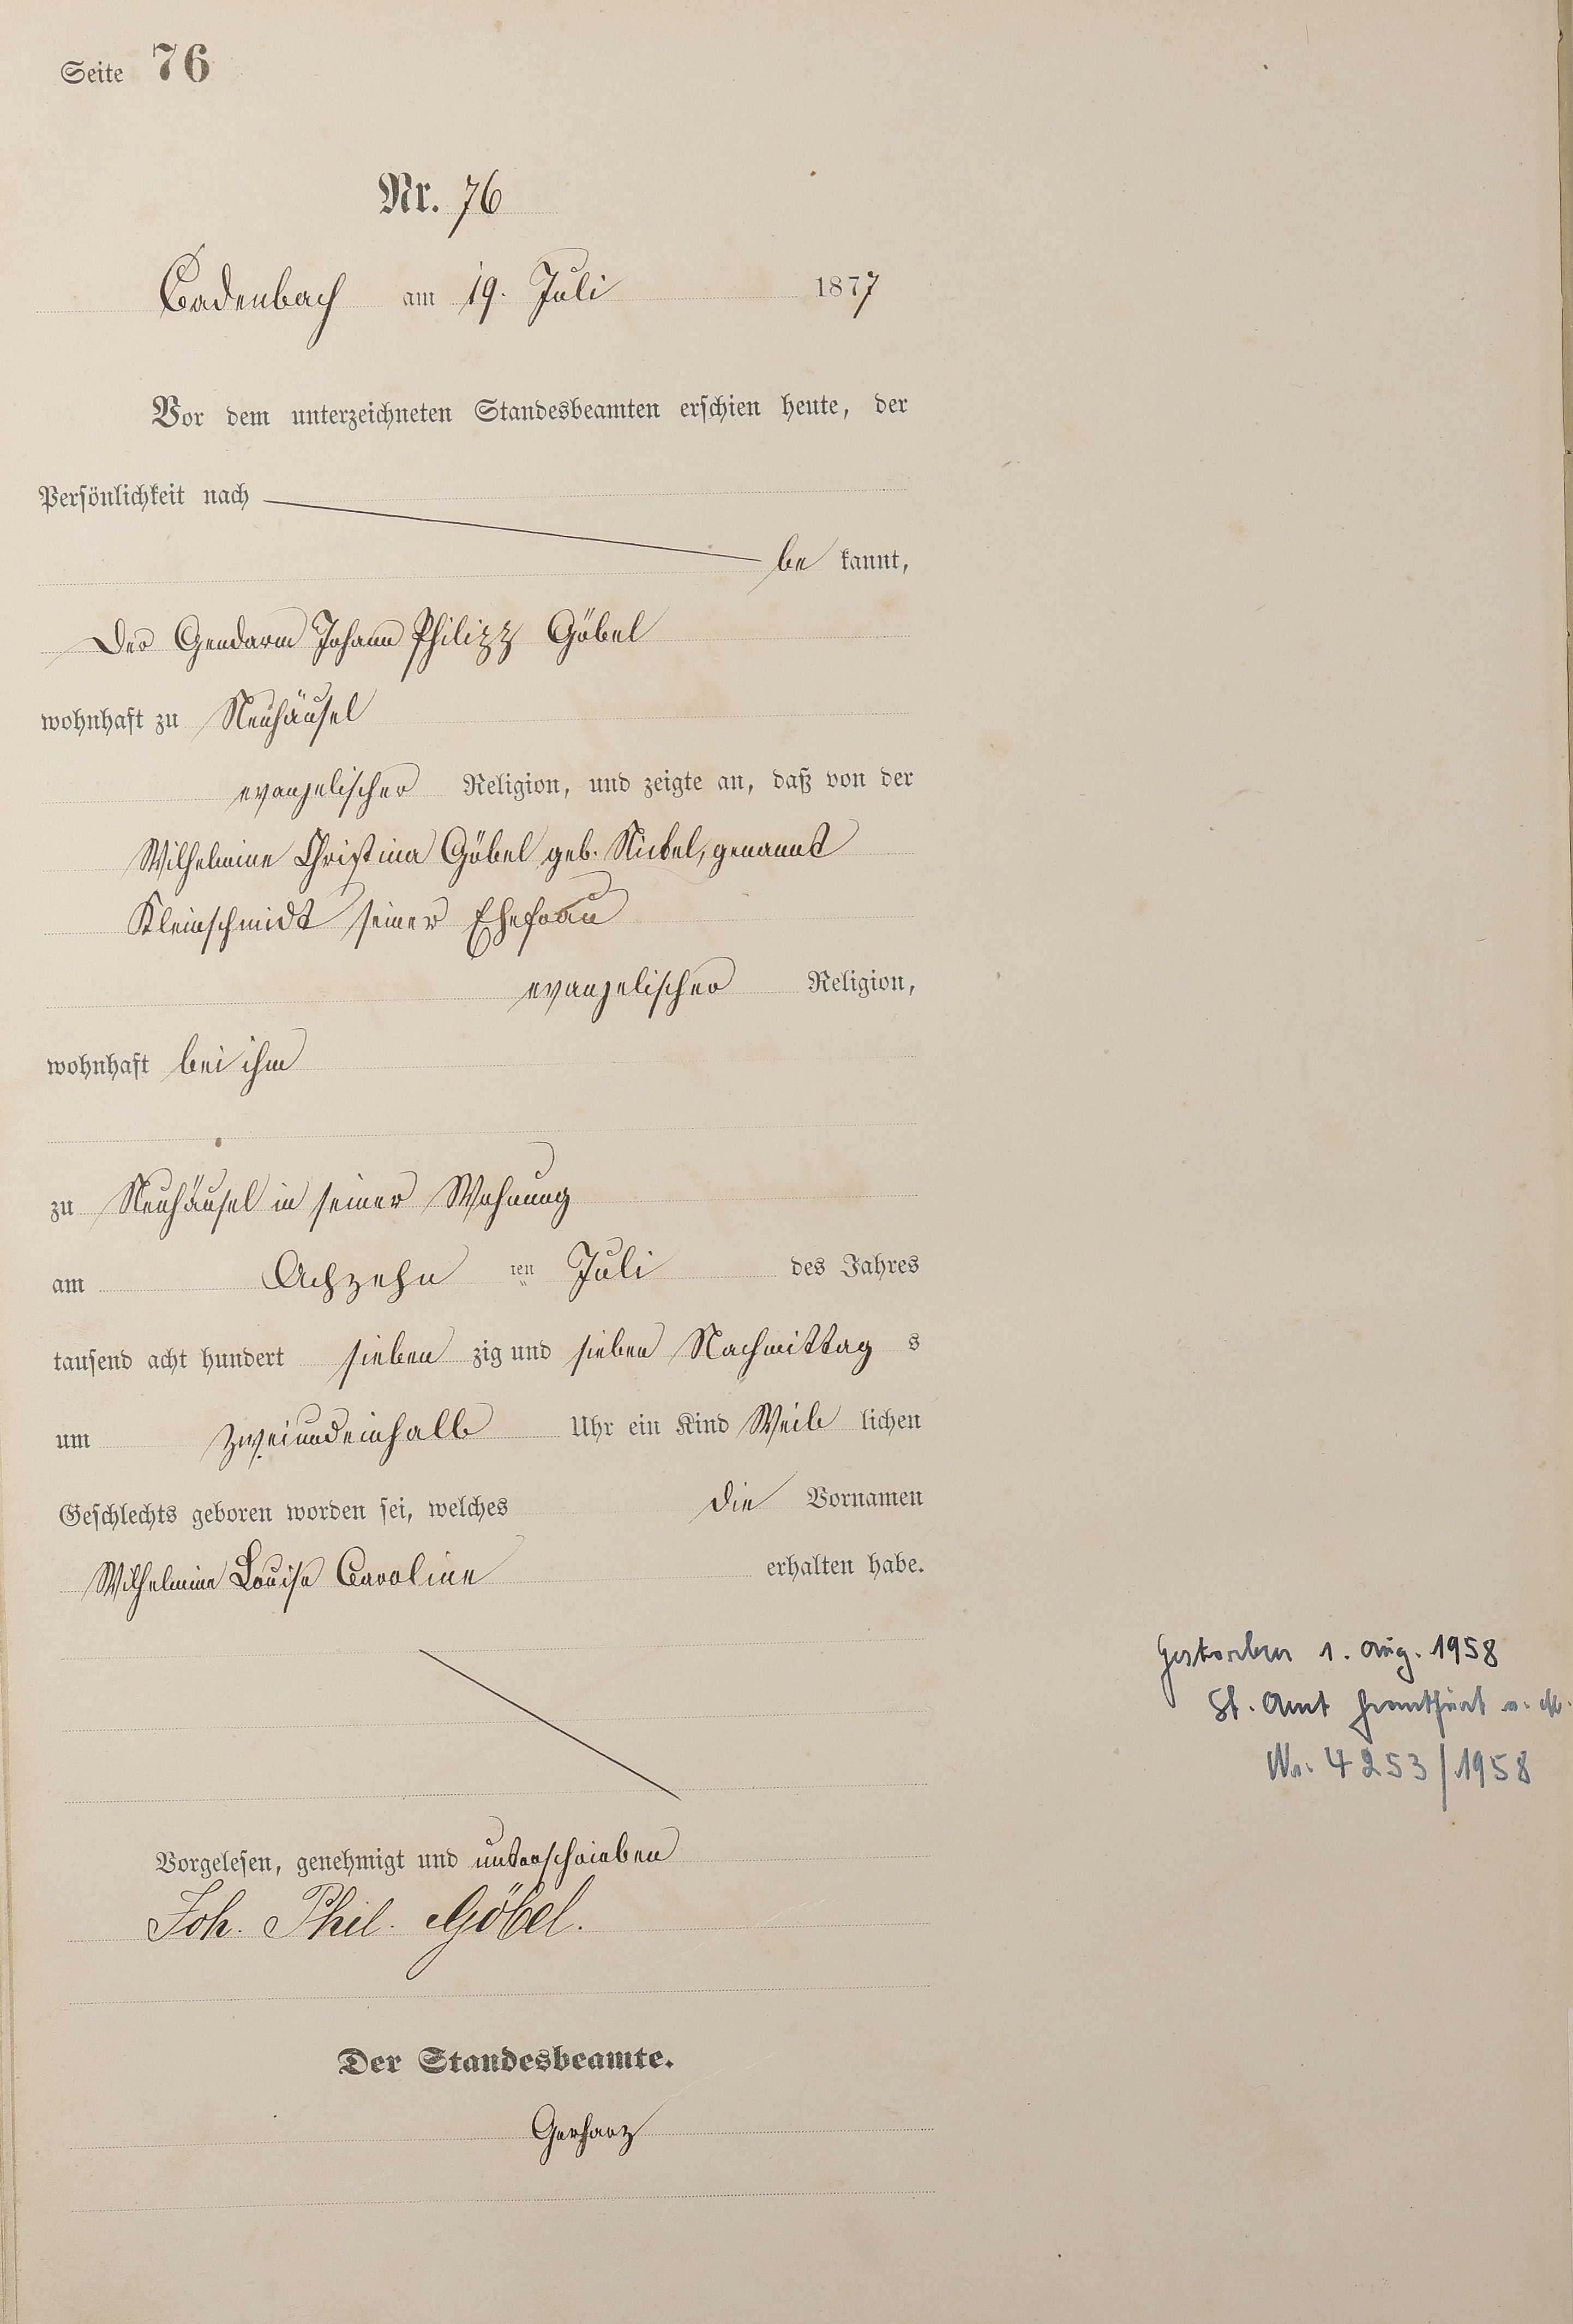 Seite 76
Nr. 76
Cadenbach am 19. Juli 1877
Vor dem unterzeichneten Standesbeamten erschien heute, der
Persönlichkeit nach
be kannt,
der Gendarm Johann Philipp Göbel
wohnhaft zu Neuhäusel
evangelischer Religion, und zeigte an, daß von der
Wilhelmine Christina Göbel geb. Nickel, genannt
Kleinschmidt seiner Ehefrau
evangelischer Religion,
wohnhaft bei ihm
zu Neuhäusel in seiner Wohnung
am Achzehn ten Juli des Jahres
tausend acht hundert sieben zig und sieben Nachmittag s
um zweiundeinhalb Uhr ein Kind Weib lichen
Geschlechts geboren worden sei, welches die Vornamen
Wilhelmine Louise Caroline erhalten habe.
Gestorben 1. Aug. 1958
St. Amt Frankfurt a. M.
Nr. 4253/1958
Vorgelesen, genehmigt und unterschrieben
Joh. Phil. Göbel.
Der Standesbeamte.
Gerharz